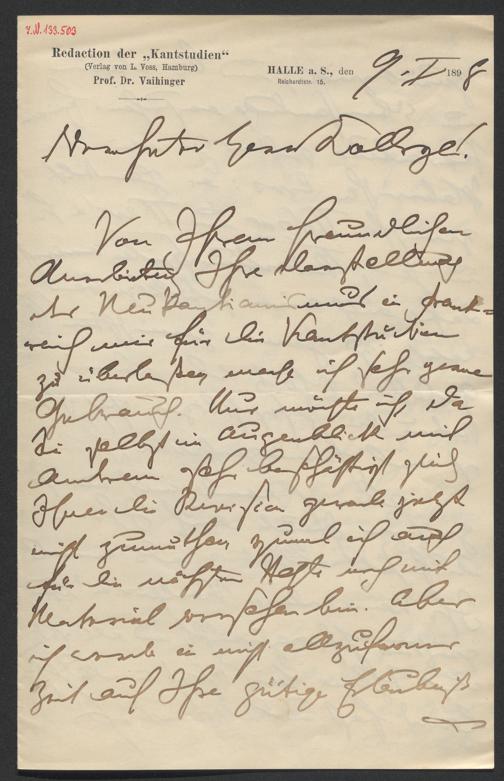 I.N. 133.503
Redaction der „Kantstudien“
(Verlag von L. Voss, Hamburg)
Prof. Dr. Vaihinger
HALLE a. S., den 9. I 1898
Reichardtstr. 15.
Verehrter Herr Kollege!
Von Ihrem freundlichen
Anerbieten, Ihre Darstellung
des Neukantianismus in Frank-
reich mir für die Kantstudien
zu überlassen, mache ich sehr gerne
Gebrauch. Nur möchte ich, da
Sie selbst im Augenblick mit
Anderem sehr beschäftigt sind,
Ihnen die Revision gerade jetzt
nicht zumuthen, zumal ich auch
für die nächsten Hefte noch mit
Material versehen bin. Aber
ich werde in nicht allzuferner
Zeit auf Ihre gütige Erlaubniß